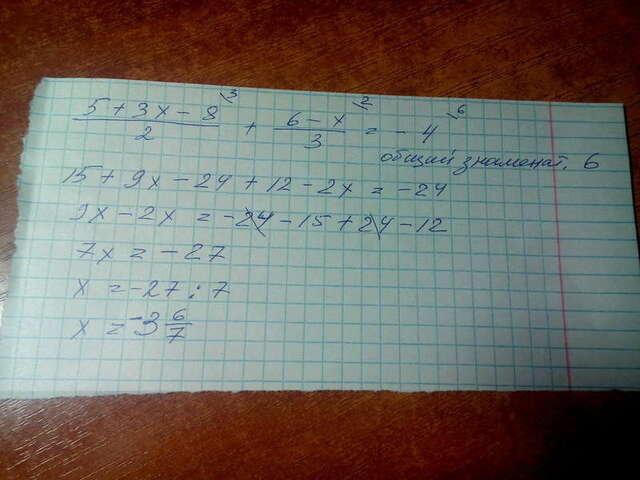 (5 + 3x - 8)/2 \3 + (6 - x)/3 \2 = - 4 \6
общий знаменат. 6
15 + 9x - 24 + 12 - 2x = -24
9x - 2x = -24 - 15 + 24 - 12
7x = -27
x = -27 : 7
x = -3 6/7